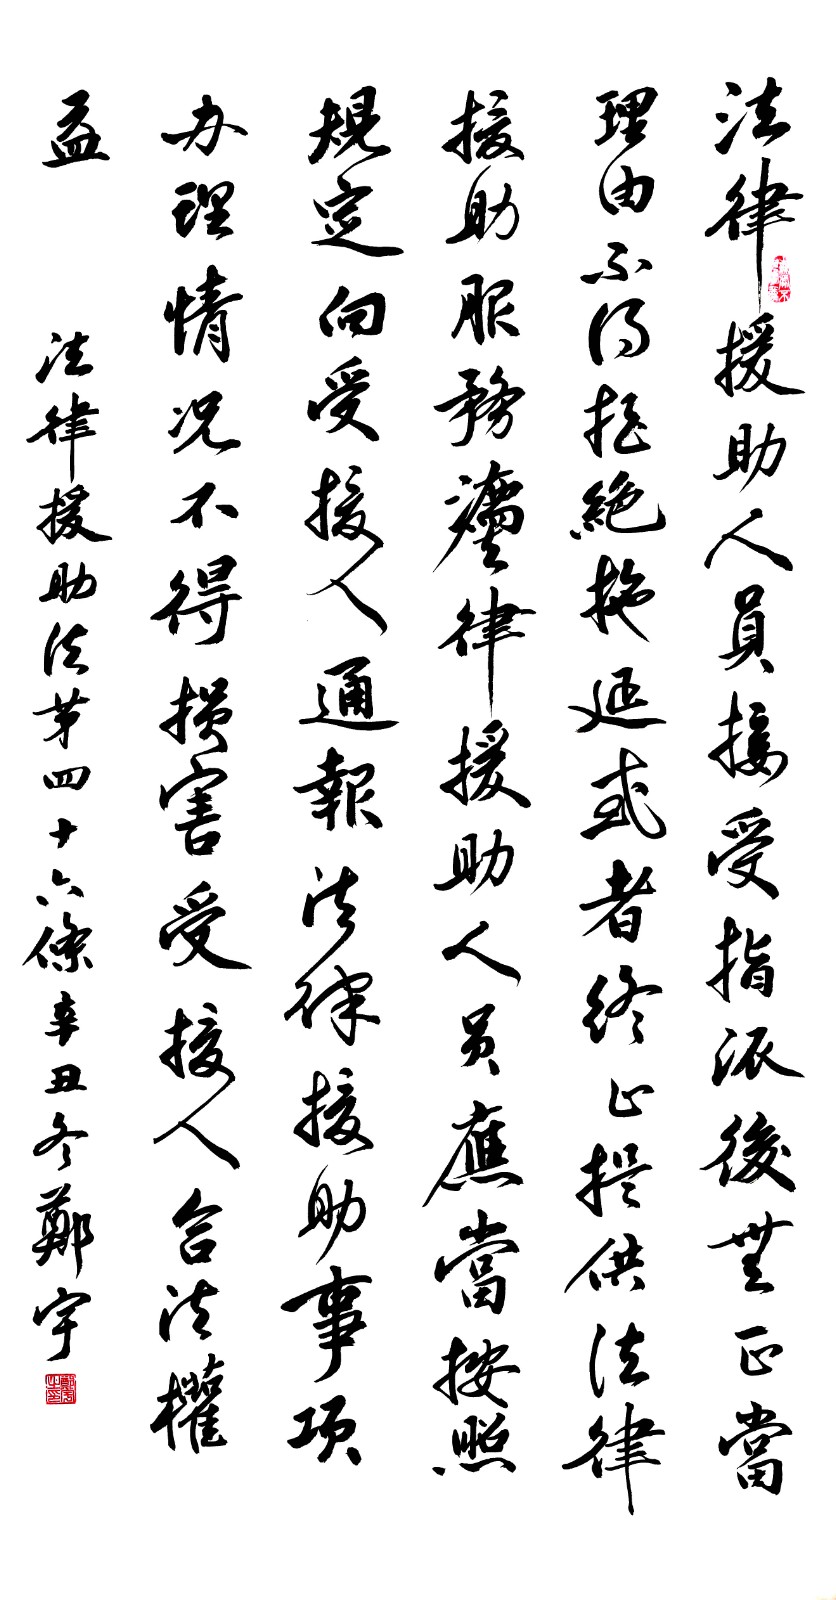 法律援助人員接受指派後無正當
理由不得拒絕拖延或者終止提供法律
援助服務灋律援助人员應當按照
規定向受援人通報法律援助事项
办理情况不得损害受援人合法權
益 法律援助法第四十六條辛丑冬鄭宇